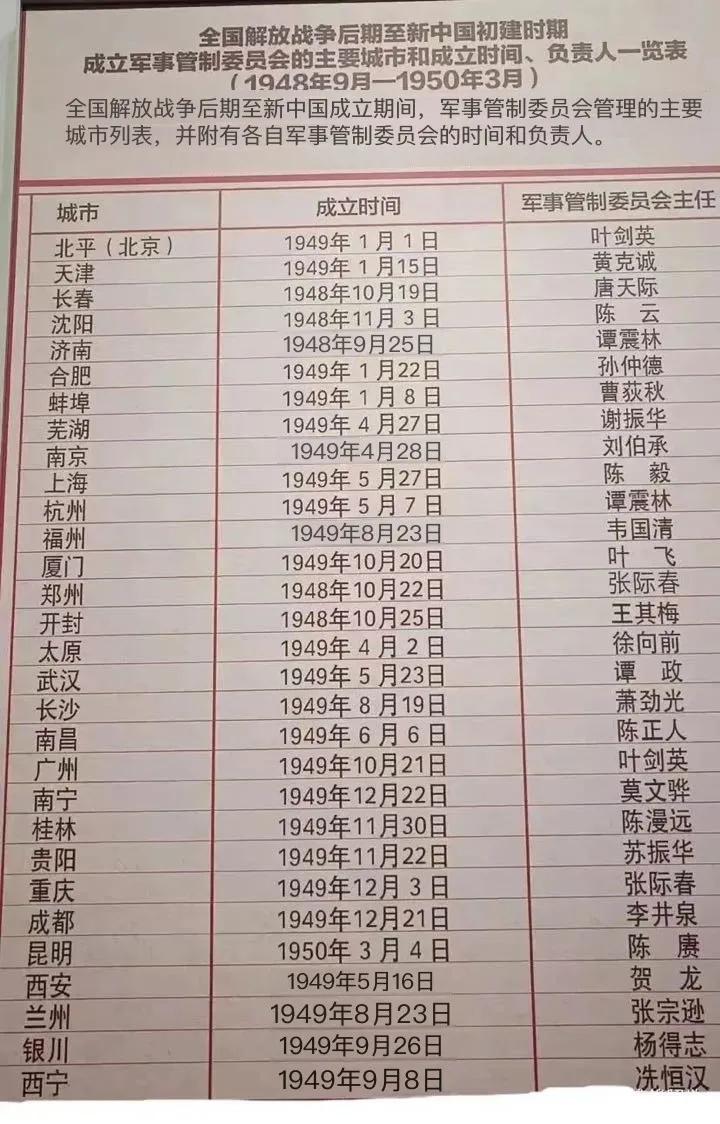 全国解放战争后期至新中国初建时期
成立军事管制委员会的主要城市和成立时间、负责人一览表
（1948年9月—1950年3月）
全国解放战争后期至新中国成立期间，军事管制委员会管理的主要
城市列表，并附有各自军事管制委员会的时间和负责人。
城市 成立时间 军事管制委员会主任
北平（北京） 1949年1月1日 叶剑英
天津 1949年1月15日 黄克诚
长春 1948年10月19日 唐天际
沈阳 1948年11月3日 陈 云
济南 1948年9月25日 谭震林
合肥 1949年1月22日 孙仲德
蚌埠 1949年1月8日 曹荻秋
芜湖 1949年4月27日 谢振华
南京 1949年4月28日 刘伯承
上海 1949年5月27日 陈 毅
杭州 1949年5月7日 谭震林
福州 1949年8月23日 韦国清
厦门 1949年10月20日 叶 飞
郑州 1948年10月22日 张际春
开封 1948年10月25日 王其梅
太原 1949年4月2日 徐向前
武汉 1949年5月23日 谭 政
长沙 1949年8月19日 萧劲光
南昌 1949年6月6日 陈正人
广州 1949年10月21日 叶剑英
南宁 1949年12月22日 莫文骅
桂林 1949年11月30日 陈漫远
贵阳 1949年11月22日 苏振华
重庆 1949年12月3日 张际春
成都 1949年12月21日 李井泉
昆明 1950年3月4日 陈 赓
西安 1949年5月16日 贺 龙
兰州 1949年8月23日 张宗逊
银川 1949年9月26日 杨得志
西宁 1949年9月8日 冼恒汉